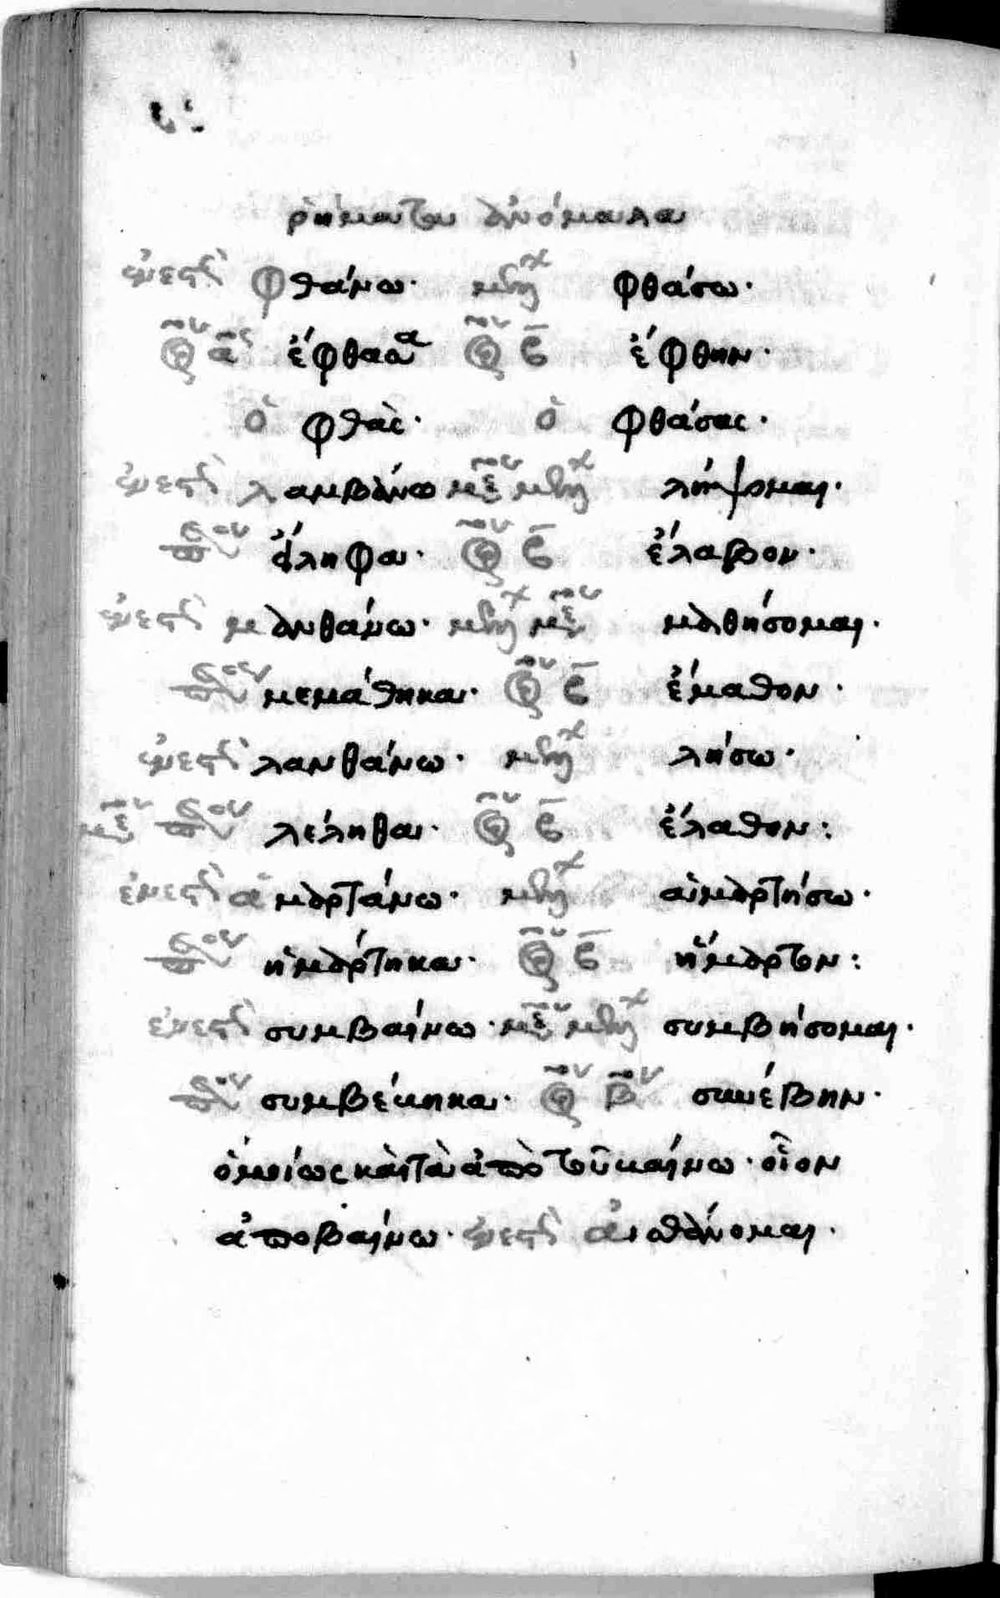 ῥημάτων ἀνόμαλα
ἐνεστ φθάνω· μλλ φθάσω·
ἀορ α ἔφθασα ἀορ β ἔφθην·
ὁ φθὰς· ὁ φθάσας·
ἐνεστ λαμβάνω μεσ μλλ λήψομαι·
εἴληφα· β ἔλαβον·
ἐνεστ μανθάνω· μλλ μεσ μαθήσομαι·
μεμάθηκα· β ἔμαθον·
ἐνεστ λανθάνω· μλλ λήσω·
μεσ λέληθα· β ἔλαθον:
ἐνεστ ἁμαρτάνω· μλλ ἁμαρτήσω·
ἡμάρτηκα· β ἥμαρτον:
ἐνεστ συμβαίνω· μεσ μλλ συμβήσομαι·
συμβέβηκα· β συνέβην·
ὁμοίως καὶ τὰ ἀπὸ τοῦ βαίνω· οἷον
ἀποβαίνω· ἐνεστ αἰσθάνομαι·